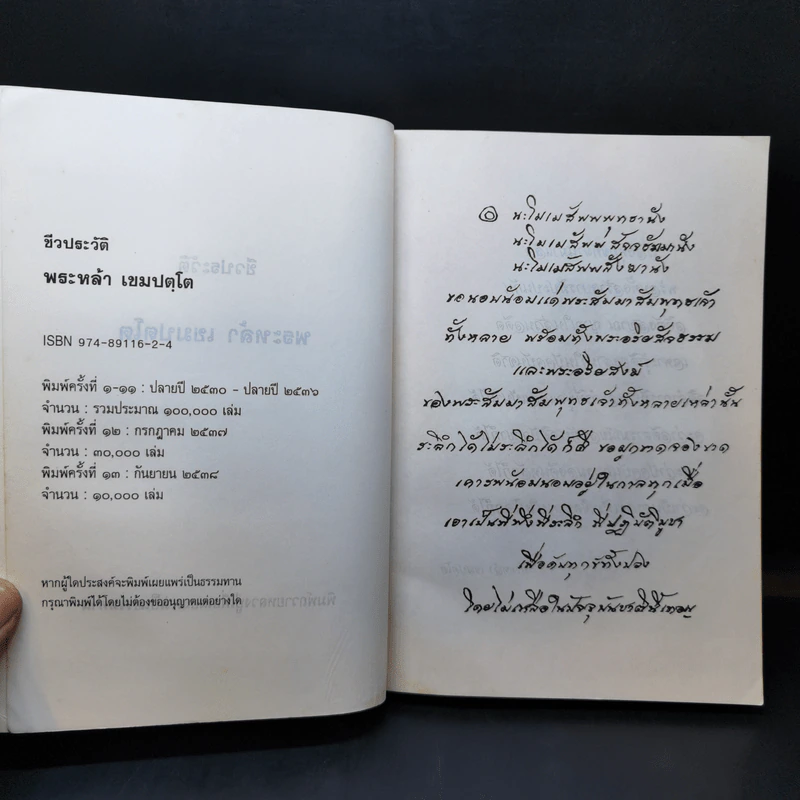 ชีวประวัติ
พระหล้า เขมปตฺโต
ISBN 974-89116-2-4
พิมพ์ครั้งที่ ๑-๑๑ : ปลายปี ๒๕๓๐ - ปลายปี ๒๕๓๖
จำนวน : รวมประมาณ ๑๐๐,๐๐๐ เล่ม
พิมพ์ครั้งที่ ๑๒ : กรกฎาคม ๒๕๓๗
จำนวน : ๓๐,๐๐๐ เล่ม
พิมพ์ครั้งที่ ๑๓ : กันยายน ๒๕๓๘
จำนวน : ๑๐,๐๐๐ เล่ม
หากผู้ใดประสงค์จะพิมพ์เผยแพร่เป็นธรรมทาน
กรุณาพิมพ์ได้โดยไม่ต้องขออนุญาตแต่อย่างใด
นะโมเมสัพพพุทธานัง
นะโมเมสัพพสัจจธัมมานัง
นะโมเมสัพพสังฆานัง
ขอนอบน้อมแด่พระสัมมาสัมพุทธเจ้า
ทั้งหลาย พร้อมทั้งพระอริยสัจธรรม
และพระอริยสงฆ์
ของพระสัมมาสัมพุทธเจ้าทั้งหลายเหล่านั้น
ระลึกได้ไม่ระลึกได้ก็ดี ขอผูกขาดจองขาด
เคารพน้อมนอบอยู่ในกาลทุกเมื่อ
เอาเป็นที่พึ่งที่ระลึก ที่ปฏิบัติบูชา
เพื่อพ้นทุกข์ทั้งปวง
โดยไม่เหลือในปัจจุบันชาตินี้เทอญ